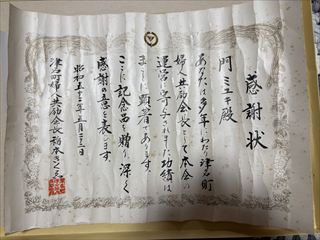 感謝状
門ミユキ殿
あなたは多年にわたり津名町
婦人共励会長として本会の
運営に寄与された功績は
まことに顕著であります
ここに記念品を贈り深く
感謝の意を表します
昭和五十三年五月二十三日
津名町婦人共励会長